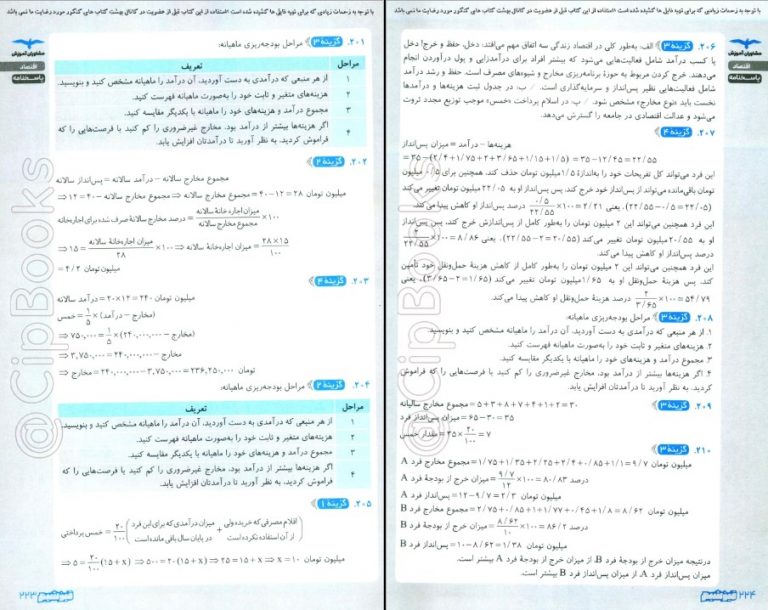 با توجه به زحمات زیادی که برای تهیه فایل ها کشیده شده است «استفاده از این کتاب قبل از عضویت در کانال یوشت کتاب های کنکور مورد رضایت ما نمی باشد
مشاوران آموزش
اقتصاد
پاسخنامه
۲۰۱. گزینه ۳ مراحل بودجه‌ریزی ماهیانه:
مراحل تعریف
۱ از هر منبعی که درآمدی به دست آوردید، آن درآمد را ماهیانه مشخص کنید و بنویسید.
۲ هزینه‌های متغیر و ثابت خود را به‌صورت ماهیانه فهرست کنید.
۳ مجموع درآمد و هزینه‌های خود را ماهیانه با یکدیگر مقایسه کنید.
۴ اگر هزینه‌ها بیشتر از درآمد بود، مخارج غیرضروری را کم کنید یا فرصت‌هایی را که
فراموش کردید، به نظر آورید تا درآمدتان افزایش یابد.
۲۰۲. گزینه ۲
مجموع مخارج سالانه − درآمد سالانه = پس‌انداز سالانه
میلیون تومان ۲۸ = ۱۲ − ۴۰ = مجموع مخارج سالانه ⇒ مجموع مخارج سالانه − ۴۰ = ۱۲
۱۰۰ × میزان اجاره‌خانهٔ سالانه / مجموع مخارج سالانه = درصد مخارج سالانهٔ صرف شده برای اجاره‌خانه
⇒ ۱۵ = میزان اجاره‌خانهٔ سالانه / ۲۸ × ۱۰۰ ⇒ میزان اجاره‌خانهٔ سالانه = ۲۸×۱۵ / ۱۰۰
میلیون تومان ۴/۲ =
۲۰۳. گزینه ۴
میلیون تومان ۲۴۰ = ۱۲ × ۲۰ = درآمد سالانه
(مخارج − درآمد) × ۱/۵ = خمس
⇒ ۷۵۰,۰۰۰ = ۱/۵ × (۲۴۰,۰۰۰,۰۰۰ − مخارج)
⇒ ۳,۷۵۰,۰۰۰ = ۲۴۰,۰۰۰,۰۰۰ − مخارج
تومان ۲۳۶,۲۵۰,۰۰۰ = ۳,۷۵۰,۰۰۰ − ۲۴۰,۰۰۰,۰۰۰ = مخارج ⇒
۲۰۴. گزینه ۲ مراحل بودجه‌ریزی ماهیانه:
مراحل تعریف
۱ از هر منبعی که درآمدی به دست آوردید، آن درآمد را ماهیانه مشخص کنید و بنویسید.
۲ هزینه‌های متغیر و ثابت خود را به‌صورت ماهیانه فهرست کنید.
۳ مجموع درآمد و هزینه‌های خود را ماهیانه با یکدیگر مقایسه کنید.
۴ اگر هزینه‌ها بیشتر از درآمد بود، مخارج غیرضروری را کم کنید یا فرصت‌هایی را که
فراموش کردید، به نظر آورید تا درآمدتان افزایش یابد.
۲۰۵. گزینه ۱
(اقلام مصرفی که خریده ولی از آن استفاده نکرده است + میزان درآمدی که برای این فرد در پایان سال باقی مانده است) ۲۰/۱۰۰ = خمس پرداختی
میلیون تومان ۱۰ = x ⇒ ۲۵ = ۱۵ + x ⇒ ۵۰۰ = ۲۰(۱۵ + x) ⇒ ۵ = ۲۰/۱۰۰ (۱۵ + x) ⇒
۲۲۳
با توجه به زحمات زیادی که برای تهیه فایل ها کشیده شده است «استفاده از این کتاب قبل از عضویت در کانال یوشت کتاب های کنکور مورد رضایت ما نمی باشد
مشاوران آموزش
اقتصاد
پاسخنامه
۲۰۶. گزینه ۳ الف: به‌طور کلی در اقتصاد زندگی سه اتفاق مهم می‌افتد: دخل، حفظ و خرج! دخل
یا کسب درآمد شامل فعالیت‌هایی می‌شود که بیشتر افراد برای درآمدزایی و پول درآوردن انجام
می‌دهند. خرج کردن مربوط به حوزهٔ برنامه‌ریزی مخارج و شیوه‌های مصرف است. حفظ و رشد درآمد
شامل فعالیت‌هایی نظیر پس‌انداز و سرمایه‌گذاری است. / ب: در جدول ثبت هزینه‌ها و درآمدها
نخست باید «نوع مخارج» مشخص شود. / پ: در اسلام پرداخت «خمس» موجب توزیع مجدد ثروت
می‌شود و عدالت اقتصادی در جامعه را گسترش می‌دهد.
۲۰۷. گزینه ۴
هزینه‌ها − درآمد = میزان پس‌انداز
= ۳۵ − (۲/۴+۱/۷۵+۲+۳/۶۵+۱/۱۵+۱/۵) = ۳۵ − ۱۲/۴۵ = ۲۲/۵۵
این فرد می‌تواند کل تفریحات خود را به‌اندازهٔ ۱/۵ میلیون تومان حذف کند. همچنین برای ۰/۵ میلیون
تومان باقی‌مانده می‌تواند از پس‌انداز خود خرج کند. پس پس‌انداز او به ۲۲/۰۵ میلیون تومان تغییر می‌کند
(۲۲/۰۵ = ۰/۵ − ۲۲/۵۵). یعنی ۲/۲۱ = ۱۰۰ × ۰/۵ / ۲۲/۵۵ درصد پس‌انداز او کاهش پیدا می‌کند.
این فرد همچنین می‌تواند این ۲ میلیون تومان را به‌طور کامل از پس‌اندازش خرج کند، پس پس‌انداز
او به ۲۰/۵۵ میلیون تومان تغییر می‌کند (۲۰/۵۵ = ۲ − ۲۲/۵۵). یعنی ۸/۸۶ = ۱۰۰ × ۲ / ۲۲/۵۵
درصد پس‌انداز او کاهش پیدا می‌کند.
این فرد همچنین می‌تواند این ۲ میلیون تومان را به‌طور کامل از کاهش هزینهٔ حمل‌ونقل خود تامین
کند، پس هزینهٔ حمل‌ونقل او به ۱/۶۵ میلیون تومان تغییر می‌کند (۱/۶۵ = ۲ − ۳/۶۵). یعنی
۵۴/۷۹ = ۱۰۰ × ۲ / ۳/۶۵ درصد هزینهٔ حمل‌ونقل او کاهش پیدا می‌کند.
۲۰۸. گزینه ۳ مراحل بودجه‌ریزی ماهیانه:
۱. از هر منبعی که درآمدی به دست آوردید، آن درآمد را ماهیانه مشخص کنید و بنویسید.
۲. هزینه‌های متغیر و ثابت خود را به‌صورت ماهیانه فهرست کنید.
۳. مجموع درآمد و هزینه‌های خود را ماهیانه با یکدیگر مقایسه کنید.
۴. اگر هزینه‌ها بیشتر از درآمد بود، مخارج غیرضروری را کم کنید یا فرصت‌هایی را که فراموش
کردید، به نظر آورید تا درآمدتان افزایش یابد.
۲۰۹. گزینه ۳
۳۰ = ۲+۱+۴+۷+۸+۳+۵ = مجموع مخارج سالیانه
۳۵ = ۳۰ − ۶۵ = میزان پس‌انداز فرد
۷ = ۲۰/۱۰۰ × ۳۵ = مقدار خمس
۲۱۰. گزینه ۳
میلیون تومان ۹/۷ = ۱/۷۵+۱/۳۵+۲/۲۵+۲/۴+۰/۸۵+۱/۱ = مجموع مخارج فرد A
درصد ۸۰/۸۳ = ۱۰۰ × ۹/۷ / ۱۲ = میزان خرج از بودجهٔ فرد A
میلیون تومان ۲/۳ = ۹/۷ − ۱۲ = پس‌انداز فرد A
میلیون تومان ۸/۶۲ = ۲/۷۵+۰/۸۵+۱/۱+۱/۷۷+۰/۴۵+۱/۸ = مجموع مخارج فرد B
درصد ۸۶/۲ = ۱۰۰ × ۸/۶۲ / ۱۰ = میزان خرج از بودجهٔ فرد B
میلیون تومان ۱/۳۸ = ۸/۶۲ − ۱۰ = پس‌انداز فرد B
درنتیجه میزان خرج از بودجهٔ فرد B، از میزان خرج از بودجهٔ فرد A بیشتر است.
میزان پس‌انداز فرد A، از میزان پس‌انداز فرد B بیشتر است.
۲۲۴
@CipBooks
@CipBooks